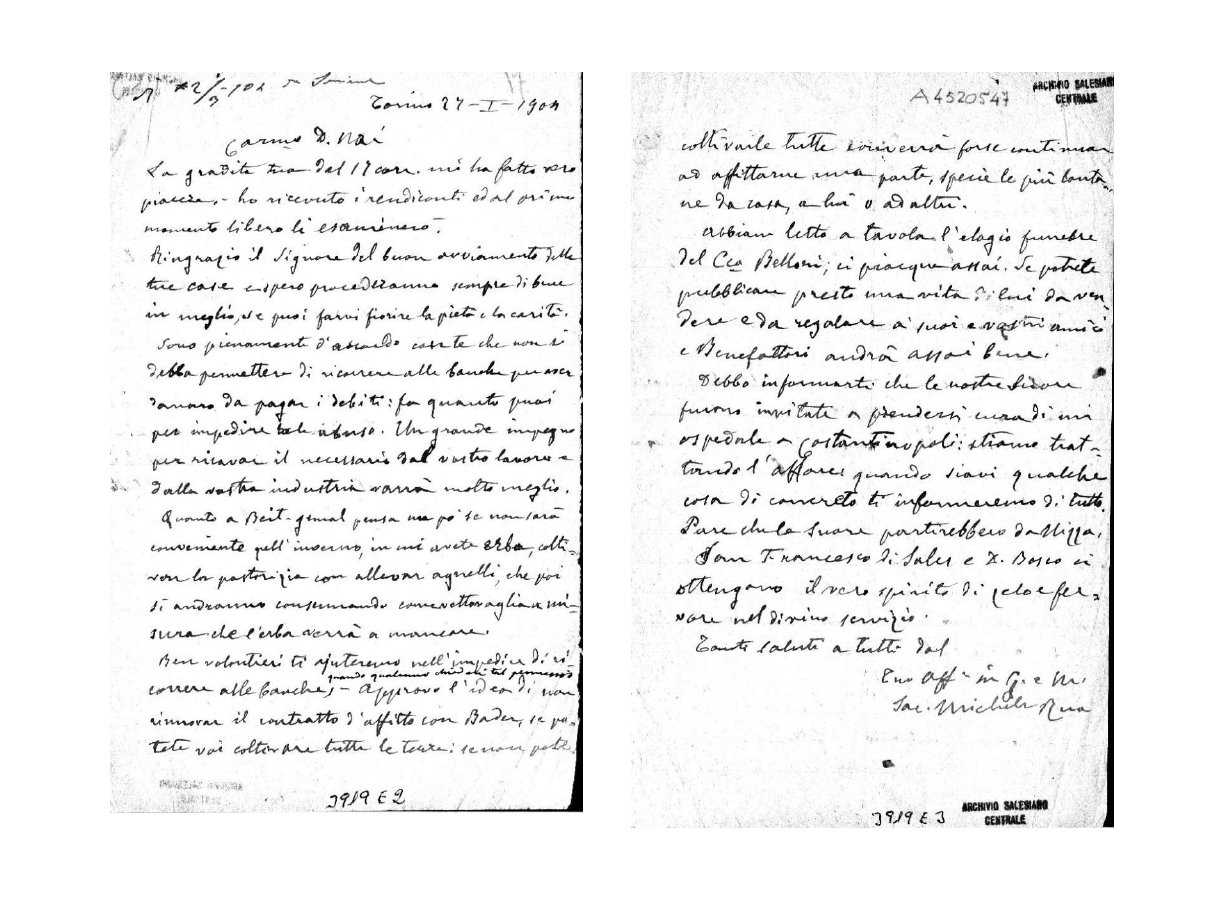 Torino 27-I-1904
Carmo D. Nai
La gradita tua del 17 corr. mi ha fatto vero
piacere, - ho ricevuto i rendiconti ed al primo
momento libero li esaminerò.
Ringrazio il Signore del buon avviamento delle
tue case e spero procederanno sempre di bene
in meglio, se puoi farvi fiorire la pietà e la carità.
Sono pienamente d'accordo con te che non si
debba permettere di ricorrere alle banche per aver
danaro da pagar i debiti: fa quanto puoi
per impedire tale abuso. Un grande impegno
per ricavar il necessario dal vostro lavoro e
dalla vostra industria varrà molto meglio.
Quanto a Beit-gemal pensa un po' se non sarà
conveniente nell'inverno, in cui avete erba, colti-
var la pastorizia con allevar agnelli, che poi
si andranno consumando come vettovaglia a mi-
sura che l'erba verrà a mancare.
Ben volontieri ti ajuteremo nell'impedire di ri-
quando qualcuno chiederà tal permesso
correre alle banche, - Approvo l'idea di non
rinnovar il contratto d'affitto con Bader, se po-
tete voi coltivare tutte le terre: se non pote
3919 E 2
A4520547
ARCHIVIO SALESIANO
CENTRALE
coltivarle tutte converrà forse continuar
ad affittarne una parte, specie le più lonta-
ne da casa, a lui o ad altri.
Abbiam letto a tavola l'elogio funebre
del Cco Belloni; ci piacque assai. Se potrete
pubblicare presto una vita di lui da ven-
dere e da regalare a' suoi e vostri amici
e Benefattori andrà assai bene.
Debbo informarti che le nostre Suore
furono invitate a prendersi cura di un
ospedale a Costantinopoli: stiamo trat-
tando l'affare; quando siavi qualche
cosa di concreto ti informeremo di tutto.
Pare che le Suore partirebbero da Nizza.
San Francesco di Sales e D. Bosco ci
ottengano il vero spirito di zelo e fer-
vore nel divino servizio.
Tanti saluti a tutti dal
Tuo Aff in G. e M.
Sac. Michele Rua
3919 E 3
ARCHIVIO SALESIANO
CENTRALE